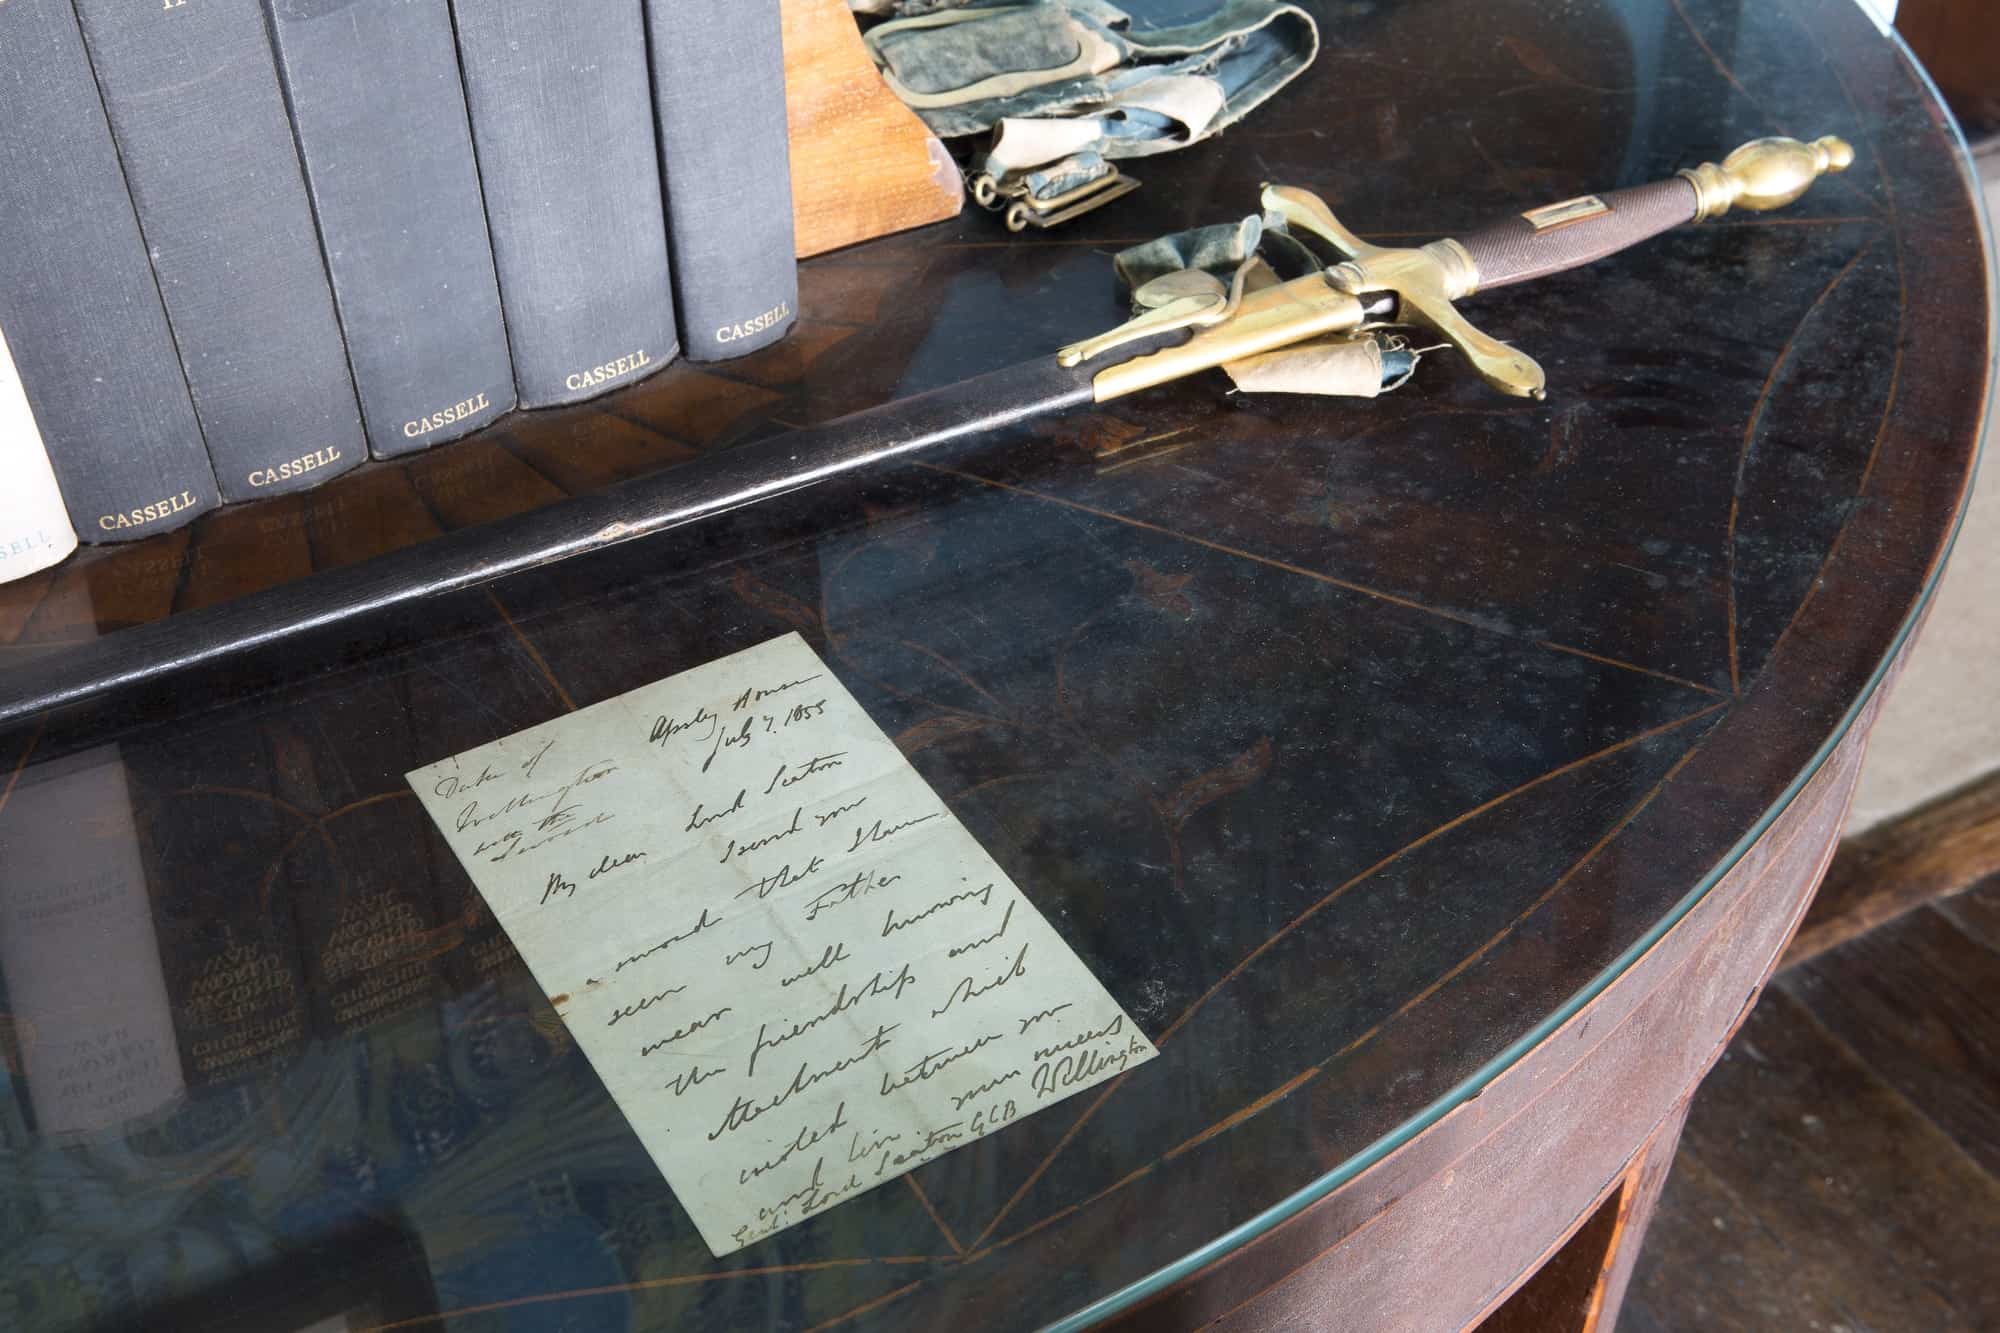 II
CASSELL
CASSELL
CASSELL
CASSELL
CASSELL
SSELL
Apsley House
July 7. 1855
Duke of
Wellington
with the
Sword
My dear Lord Seaton
I send you
a sword that I have
seen my Father
wear well knowing
the friendship and
attachment which
existed between you
and him
yours sincerely
Wellington
Genl. Lord Seaton GCB